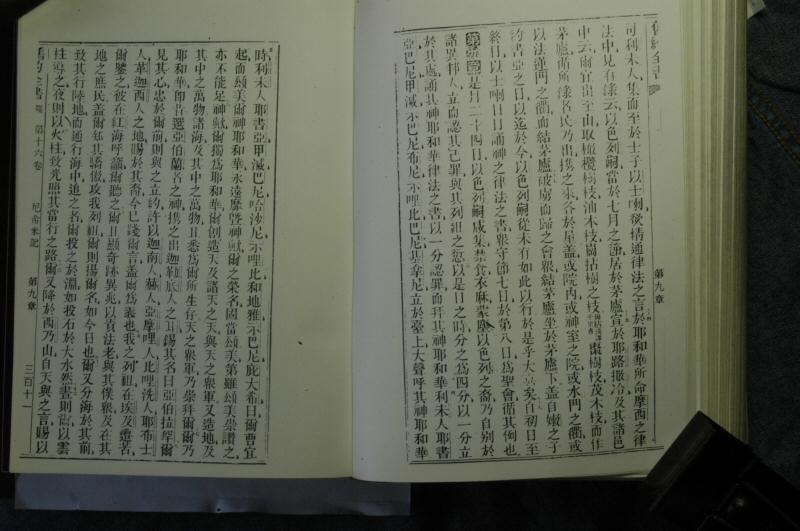 舊約全書
司利未人集而至於士子以士喇欲精通律法之言於耶和華所命摩西之律
法中見有錄云以色列嗣當於七月之節居於茅廬宣於耶路撒冷及其諸邑
中云爾宜出至山取橄欖樹枝油木枝崗拈樹之枝棗樹枝茂木枝而作
茅廬前所錄者民乃出攜之來各於屋蓋或院內或神室之院或水門之衢或
以法蓮門之衢而結茅廬被虜而歸之台眾結茅廬坐於茅廬下蓋自嫩之子
約書亞之日以迄於今以色列嗣從未有如此以行於是乎大喜矣自初日至
終日以士喇日日誦神之律法之書眾守節七日於第八日爲聖會循其例也
第九章是月二十四日以色列嗣咸集禁食衣麻蒙塵以色列之裔乃自別於
諸異邦人立而認其己罪與其列祖之愆以是日之時分之爲四分以一分立
於其處誦其神耶和華律法之書以一分認罪而拜其神耶和華利未人耶書
亞巴尼甲滅示巴尼布尼示哩此巴尼其拿尼立於臺上大聲呼其神耶和華
第九章
時利未人耶書亞甲滅巴尼哈沙尼示哩此和地雅示巴尼庇大希曰爾曹宜
起而頌美爾神耶和華永遠靡曁神歟爾之榮名固當頌美第雖頌美崇讚之
亦不能足神歟爾獨爲耶和華爾創造天及諸天之天與天之眾軍又造地及
其中之萬物諸海及其中之萬物且悉爲爾所生存天之眾軍乃崇拜爾爾乃
耶和華神昔選亞伯蘭者之神攜之出迦勒底人之耳錫其名曰亞伯拉罕爾
見其心忠於爾前則與之立約許以迦南人赫人亞摩哩人比哩洗人耶布士
人革迦西人之地賜於其裔今已踐爾言蓋爾爲義也我之列祖在埃及遭苦
爾鑒之彼在紅海呼籲爾聽之爾且顯奇跡異兆以責法老與其僕眾及在其
地之庶民蓋爾知其驕傲攻我列祖爾則揚爾名如今日也爾又分海於其前
致其行陸地而通行海中追之者爾投之於淵如投石於大水然晝則爾以雲
柱導之夜則以火柱致光照其當行之路爾又降於西乃山自天與之言賜以
舊約全書 第十六卷 尼希米記 第九章 三百十一